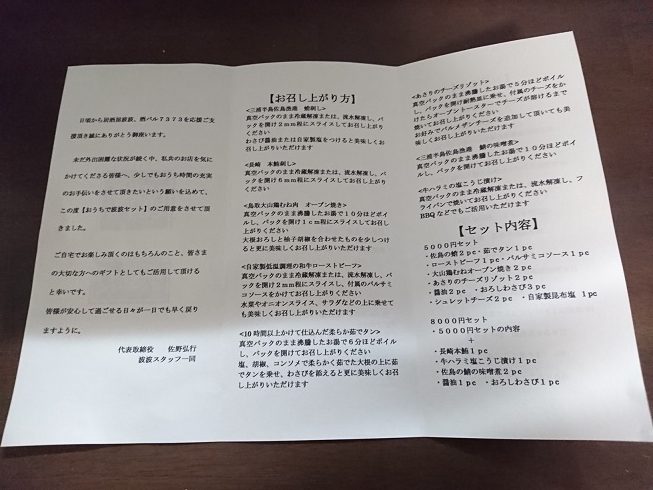 日頃から居酒屋波波、酒バル７３７３を応援ご支
援頂き誠にありがとう御座います。
未だ外出困難な状況が続く中、私共のお店を気に
かけてくださる皆様へ、少しでもおうち時間の充実
のお手伝いをさせて頂きたいという願いを込めて、
この度【おうちで波波セット】のご用意をさせて頂
きました。
ご自宅でお楽しみ頂くのはもちろんのこと、皆さま
の大切な方へのギフトとしてもご活用して頂ける
と幸いです。
皆様が安心して過ごせる日々が一日でも早く戻り
ますように。
代表取締役　佐野弘行
波波スタッフ一同
【お召し上がり方】
<三浦半島佐島漁港　蛸刺し>
真空パックのまま冷蔵解凍または、流水解凍し、パ
ックを開け２ｍｍ程にスライスしてお召し上がり
ください
わさび醤油または自家製塩をつけると美味しくお
召し上がりいただけます
<長崎　本鮪刺し>
真空パックのまま冷蔵解凍または、流水解凍し、パ
ックを開け６ｍｍ程にスライスしてお召し上がり
ください
<鳥取大山鶏むね肉　オーブン焼き>
真空パックのまま沸騰したお湯で１０分ほどボイ
ルし、パックを開け１ｃｍ程にスライスしてお召し
上がりください
大根おろしと柚子胡椒を合わせたものを少しつけ
ると更に美味しくお召し上がりいただけます
<自家製低温調理の和牛ローストビーフ>
真空パックのまま冷蔵解凍または、流水解凍し、パ
ックを開け２ｍｍ程にスライスし、付属のバルサミ
コソースをかけてお召し上がりください
水菜やオニオンスライス、サラダなどの上に乗せて
も美味しくお召し上がりいただけます
<10 時間以上かけて仕込んだ柔らか茹でタン>
真空パックのまま沸騰したお湯で６分ほどボイル
し、パックを開けてお召し上がりください
塩、胡椒、コンソメで柔らかく茹でた大根の上に茹
でタンを乗せ、わさびを添えると更に美味しくお召
し上がりいただけます
<あさりのチーズリゾット>
真空パックのまま沸騰したお湯で５分ほどボイル
し、パックを開け耐熱皿に乗せ、付属のチーズをか
けたらオーブントースターでチーズが溶けるまで
焼いてお召し上がりください
お好みでパルメザンチーズを追加して頂いても美
味しくお召し上がりいただけます
<三浦半島佐島漁港　鯖の味噌煮>
真空パックのまま沸騰したお湯で１０分ほどボイ
ルし、パックを開けてお召し上がりください
<牛ハラミ塩こうじ漬け>
真空パックのまま冷蔵解凍または、流水解凍し、フ
ライパンで焼いてお召し上がりください
BBQ などでもご活用いただけます
【セット内容】
５０００円セット
・佐島の蛸２ｐｃ・茹でタン１ｐｃ
・ローストビーフ１ｐｃ・バルサミコソース１ｐｃ
・大山鶏むねオーブン焼き２ｐｃ
・あさりのチーズリゾット２ｐｃ
・醤油２ｐｃ　・おろしわさび３ｐｃ
・シュレットチーズ２ｐｃ　・自家製昆布塩　１ｐｃ
８０００円セット
・５０００円セットの内容
＋
・長崎本鮪１ｐｃ
・牛ハラミ塩こうじ漬け１ｐｃ
・佐島の鯖の味噌煮２ｐｃ
・醤油１ｐｃ　・おろしわさび１ｐｃ